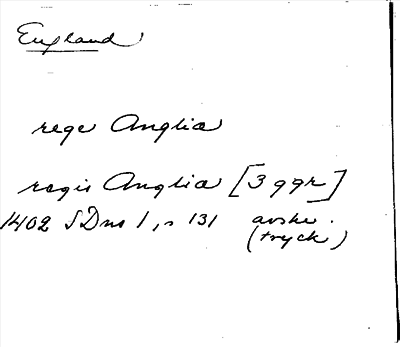 England
rege Anglia
regis Anglia [3 ggr]
1402 SDns 1, n 131 avskr.
(tryck)